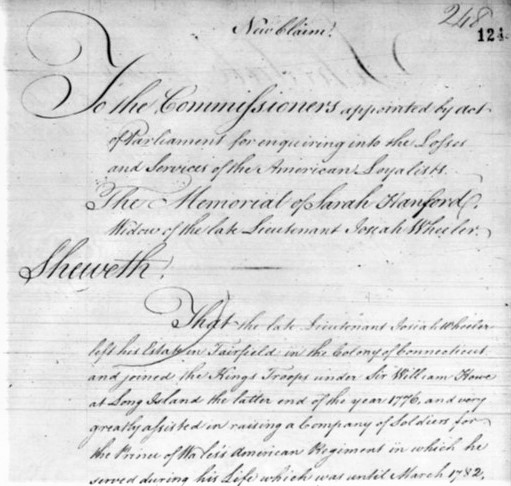 New Claim!
248
124
To the Commissioners appointed by act
of Parliament for enquiring into the Losses
and Services of the American Loyalists.
The Memorial of Sarah Hanford,
Widow of the late Lieutenant Josiah Wheeler.
Sheweth!
That the late Lieutenant Josiah Wheeler
left his Estate in Fairfield in the Colony of Connecticut
and joined the Kings Troops under Sir William Howe
at Long Island the latter end of the year 1776, and very
greatly assisted in raising a Company of Soldiers for
the Prince of Wales's American Regiment in which he
served during his Life which was until March 1782,